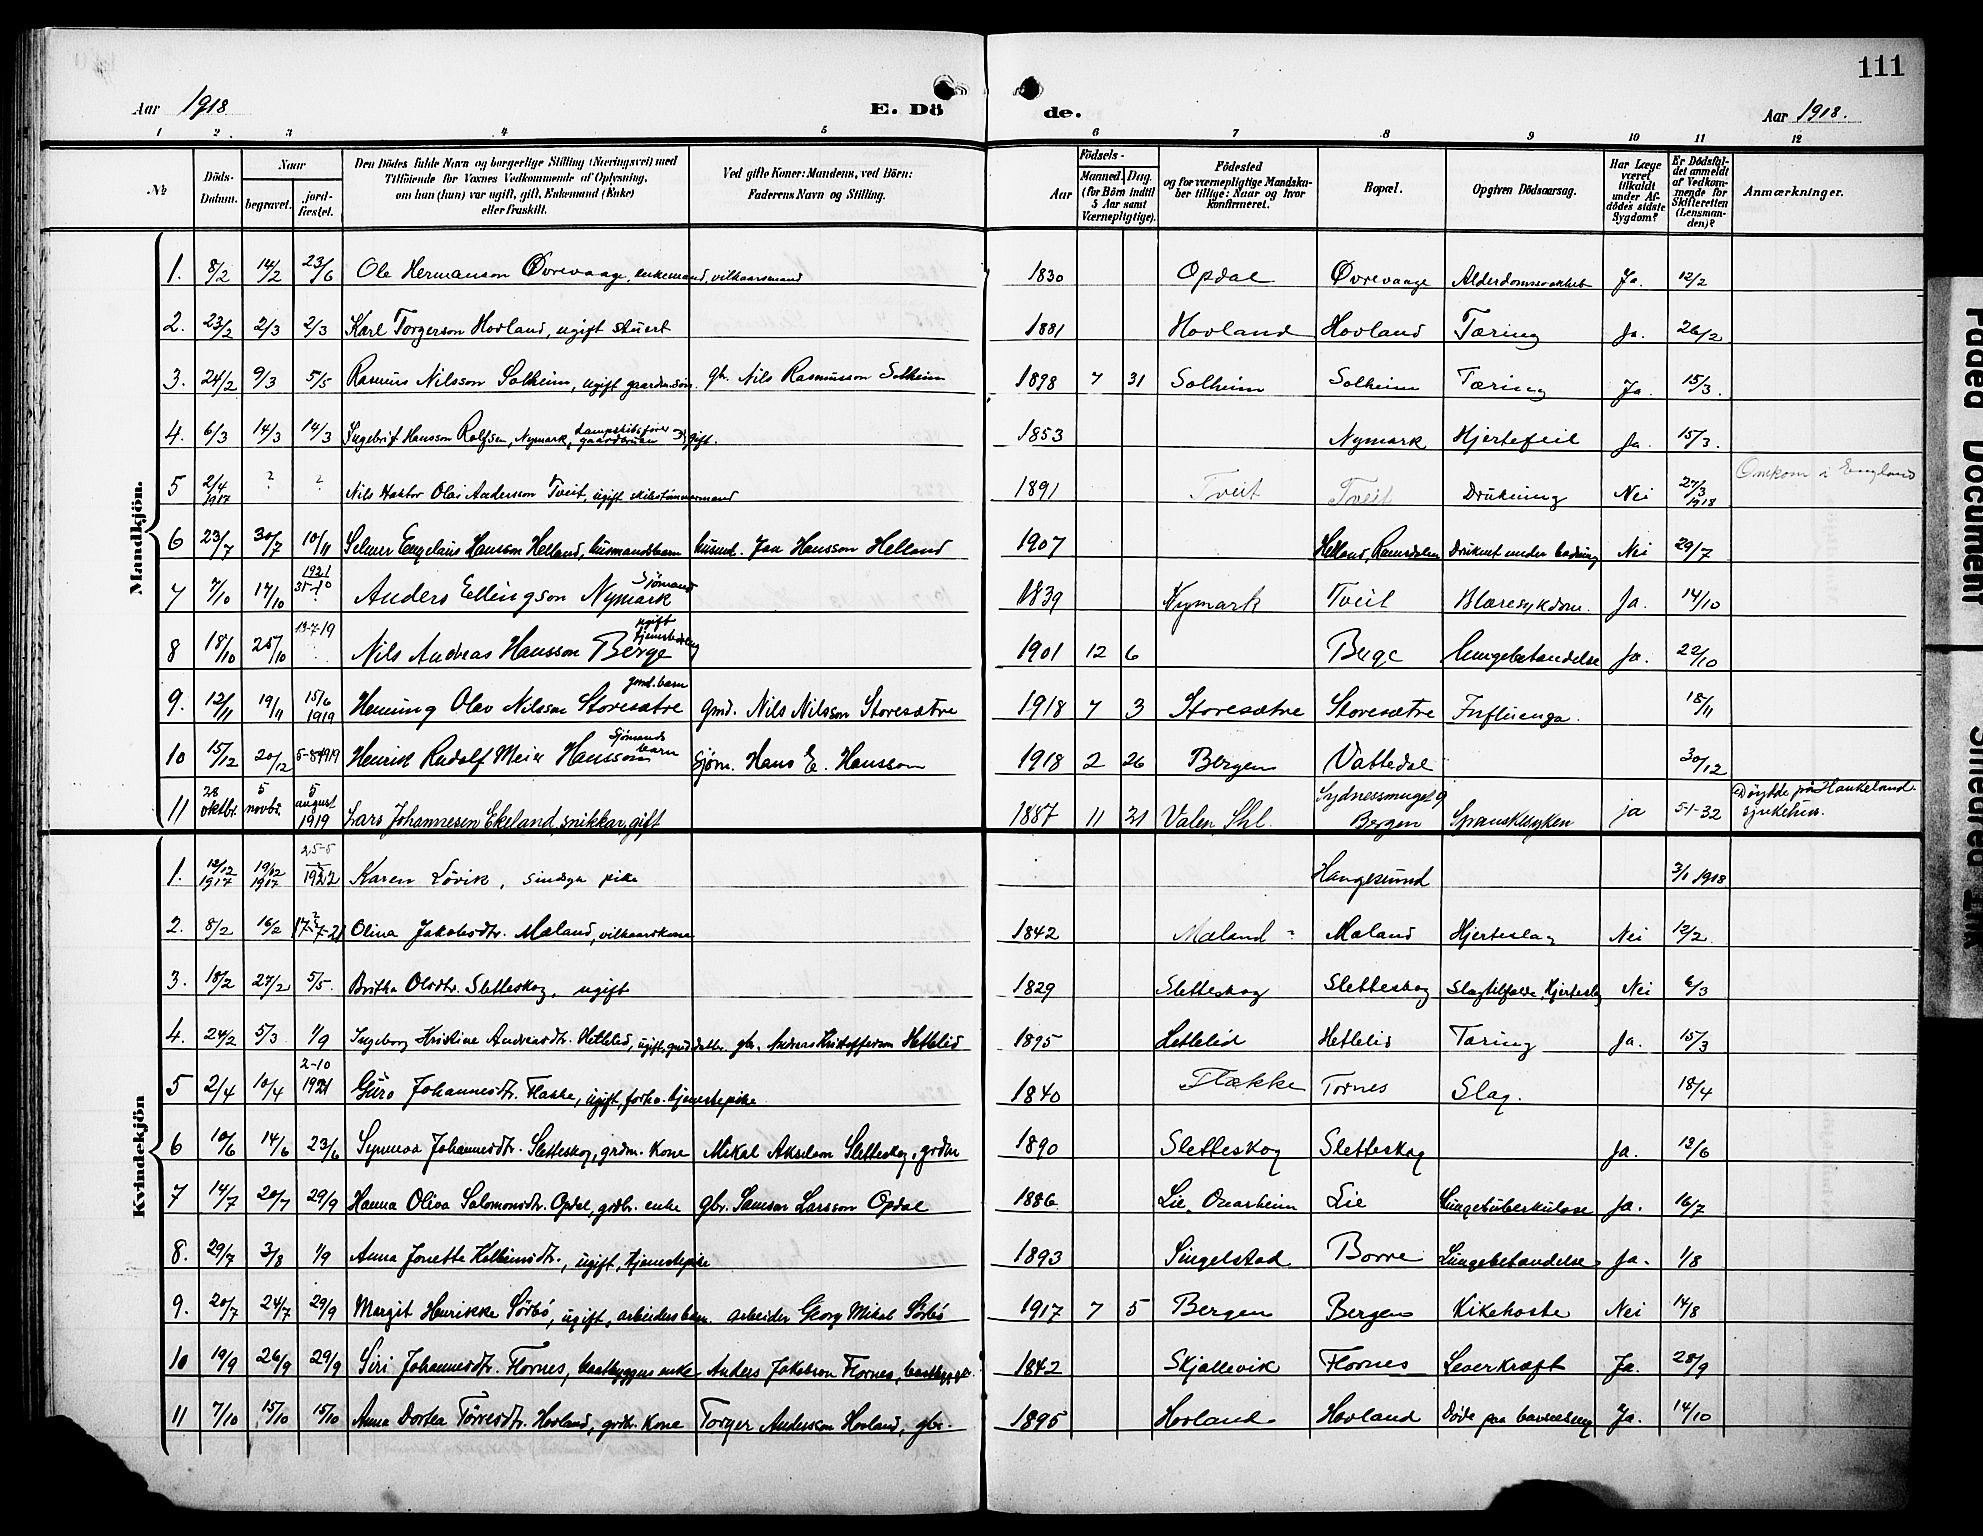 111
Aar 1918. E. Dö de. Aar 1918.
1 2. 3 4 5 6 7 8 9 10 11 12
No
Döds-Datum.
Naar
begravet.
jordfæstet.
Den Dödes fulde Navn og borgerlige Stilling (Næringsvei) med
Tilföiende for Voxnes Vedkommende af Oplysning,
om han (hun) var ugift, gift, Enkemand (Enke)
eller fraskilt.
Ved gifte Koner: Mandens, ved Börn:
Faderens Navn og Stilling.
Födsels-
Aar
Maaned. Dag.
(for Börn indtil
5 Aar samt
Værnepligtige).
Födested
og for værnepligtige Mandska-
ber tillige: Naar og hvor
konfirmeret.
Bopæl.
Opgiven Dödsaarsag.
Har Læge
været
tilkaldt
under Af-
dödes sidste
Sygdom?
Er Dödsfal-
det anmeldt
af Vedkom-
mende for
Skifteretten
(Lensman-
den)?
Anmærkninger.
Mandkjön.
1. 8/2 14/2 23/6 Ole Hermanson Øvrevaage, enkemand, vilkaarsmand 1830 Opdal Øvrevaage Alderdomssvakhet Ja. 12/2
2. 23/2 2/3 2/3 Karl Torgerson Hovland, ugift stuert 1881 Hovland Hovland Tæring Ja. 26/2
3. 24/2 9/3 5/5 Rasmus Nilsson Solheim, ugift gaardm.søn. gb. Nils Rasmusson Solheim 1898 7 31 Solheim Solheim Tæring Ja. 15/3.
4. 6/3 14/3 14/3 Ingebrit Hansson Rolfsen, Nymark, dampskibsfører gaardbruker, gift. 1853 Nymark Hjertefeil Ja. 15/3.
5 2/4 1917 ? ? Nils Olai Andersson Tveit, ugift skibstømmermand 1891 Tveit Tveit Drukning Nei 27/3 1918 Omkom i England
6 23/7 30/7 10/11 Selmer Engelaus Hansson Helland, husmandsbarn husmd. Jan Hansson Helland 1907 Helland, Ramsdalen Druknet under badning Nei 29/7
7 7/10 17/10 1921 31-10 Anders Ellingson Nymark Sjømand 1839 Nymark Tveit Blæresykdom. Ja. 14/10
8 18/10 25/10 13-7-19 Nils Andreas Hansson Berge ugift 1901 12 6 Berge Lungebetændelse Ja. 22/10
9. 12/11 19/11 15/6 1919 Henning Olav Nilsson Storesætre gmd.barn gmd. Nils Nilsson Storesætre 1918 7 3 Storesætre Storesætre Influenza. 18/11
10 15/12 20/12 5-8-1919 Henrik Rudolf Meier Hansson Sjømands barn Sjøm. Hans E. Hansson 1918 2 26 Bergen Vattedal 30/12
11 28 oktbr. 5 novbr. 5 august 1919 Lars Johannesen Ekeland, snikkar, gift 1887 11 21 Valen Shl. Sydnessmuget 9 Bergen Spanskesyken ja 5-1-32 Døydde på Haukeland sjukehus.
Kvindekjön
1. 12/12 1917 19/12 1917 25-5 1922 Karen Løvik, sindsyk pike Haugesund 3/1 1918
2. 8/2 16/2 17-7-21 Olina Jakobsdtr. Mæland, vilkaarskone 1842 Mæland ? Mæland Hjerteslag Nei 12/2
3. 18/2 27/2 5/5. Britha Olsdtr. Sletteskog, ugift 1829 Sletteskog Sletteskog Slagtilfælde, Hjerteslag Nei 6/3
4. 24/2 5/3. 1/9 Ingeborg Kristine Andreasdtr. Hetlelid, ugift, gmd.datter gbr. Andreas Kristofferson Hetlelid 1895 Hetlelid Hetlelid Tæring Ja. 15/3
5 2/4 10/4 2-10 1921 Guro Johannesdtr. Flække, ugift, forhv. tjenestepike 1840 Flække Tornes Slag. 18/4
6 10/6 14/6 23/6 Synneva Johannesdtr. Sletteskog, grdm. Kone Mikal Akselson Sletteskog, grdm 1890 Sletteskog Sletteskog Ja. 13/6
7 14/7 20/7 29/9 Hanna Oliva Salomonsdtr. Opdal, grdbr. enke gbr. Samson Larsson Opdal 1886 Lie, Onarheim Lie Lungetuberkulose Ja. 16/7
8. 29/7 3/8 1/9 Anna Jonette, ugift, tjenestepike 1893 Singelstad Borre Lungebetændelse Ja. 1/8
9. 20/7 24/7 29/9 Margit Henrikke Sørbø, ugift, arbeidersbarn. arbeider Georg Mikal Sørbø 1917 7 5 Bergen Bergen Kikehoste Nei 14/8
10 19/9 26/9 29/9 Siri Johannesdtr. Flornes, baatbyggers enke Anders Jakobson Flornes, baatbygger 1842 Skjellevik Flornes Leverkræft Ja. 28/9
11 7/10 15/10 15/10 Anna Dortea Tørresdtr. Hovland, grdbr. Kone Torger Andersson Hovland, gbr. 1895 Hovland Hovland Døde paa barselseng Ja. 14/10
Faded Document
Smeared Ink